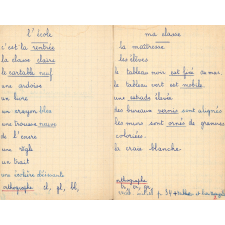 l'école
c'est la rentrée
la classe claire
le cartable neuf
une ardoise
un livre
un crayon bleu
une trousse
de l'encre
une règle
un trait
une écolière
orthographe cl, gl, bl,
ma classe
la maîtresse
les élèves
le tableau noir est fixé au mur.
le tableau vert est mobile.
une estrade élevée
des bureaux vernis sont alignés
les murs sont ornés de gravures
coloriées.
la craie blanche.
orthographe